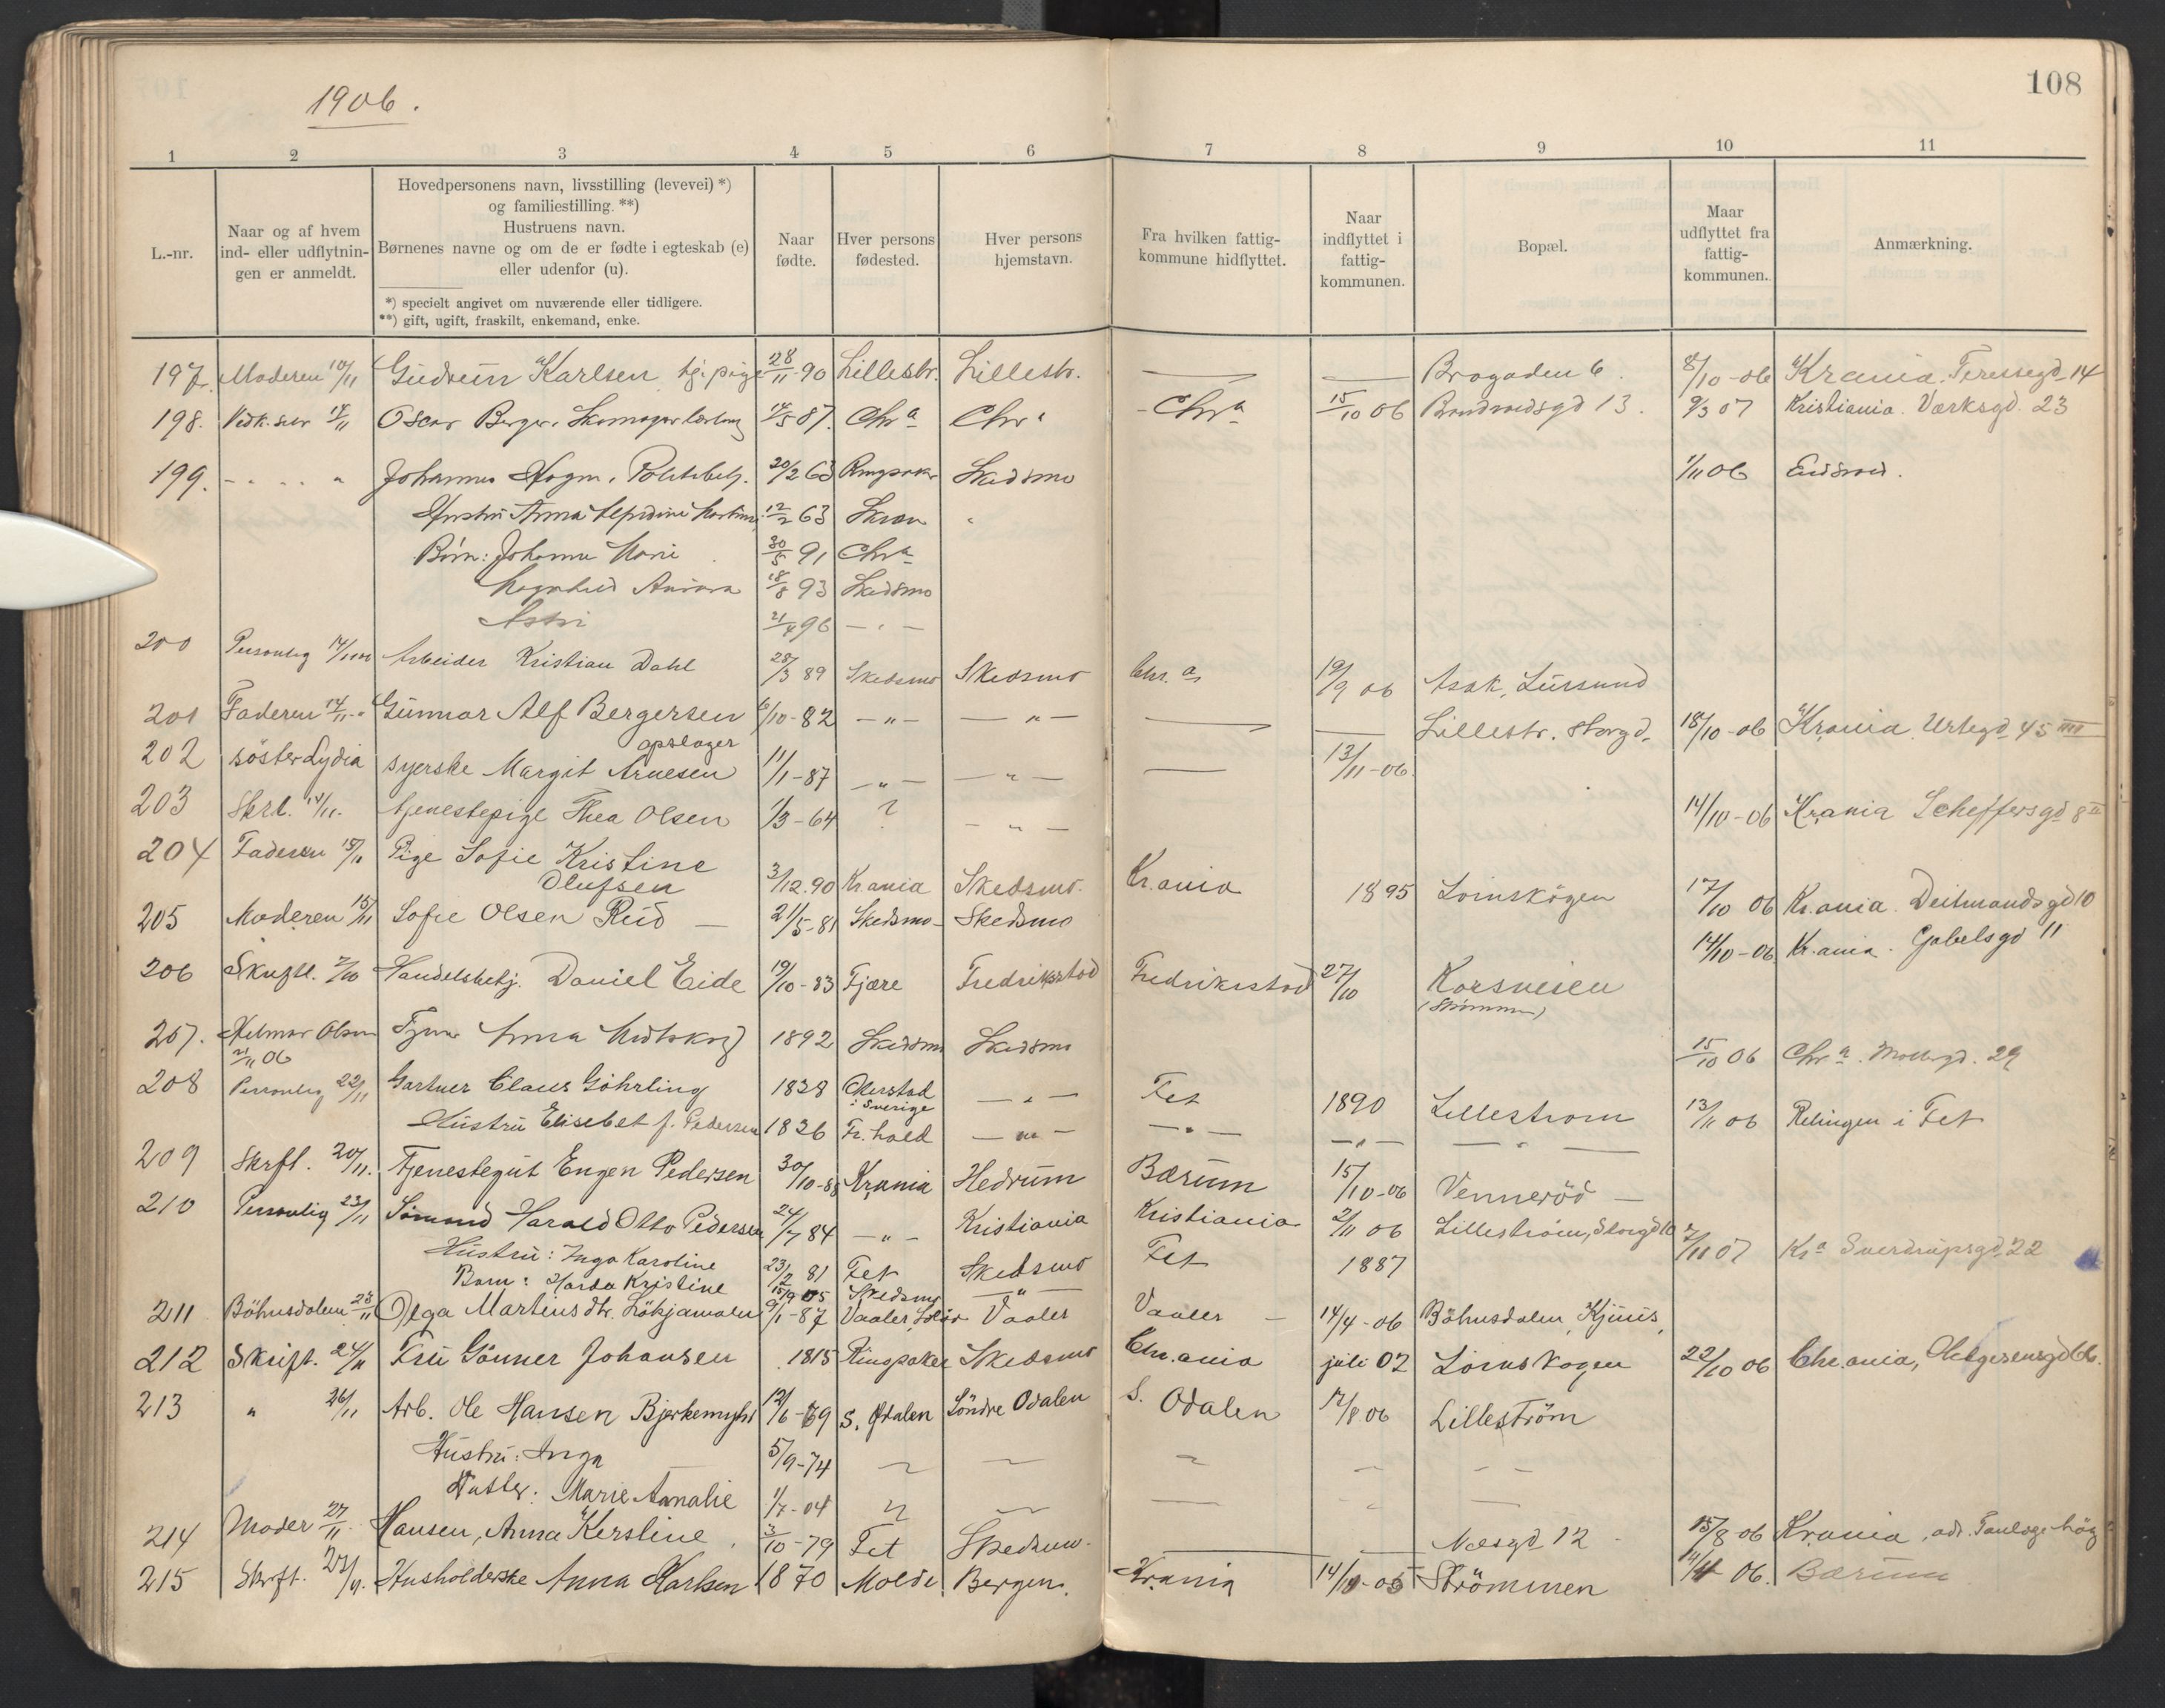 108
1906.
1 2 3 4 5 6 7 8 9 10 11
L.-nr.
Naar og af hvem
ind- eller udflytnin-
gen er anmeldt.
Hovedpersonens navn, livsstilling (levevei) *)
og familiestilling. **)
Hustruens navn.
Børnenes navne og om de er fødte i egteskab (e)
eller udenfor (u).
*) specielt angivet om nuværende eller tidligere.
**) gift, ugift, fraskilt, enkemand, enke.
Naar
fødte.
Hver persons
fødested.
Hver persons
hjemstavn.
Fra hvilken fattig-
kommune hidflyttet.
Naar
indflyttet i
fattig-
kommunen.
Bopæl.
Maar
udflyttet fra
fattig-
kommunen.
Anmærkning.
197. Moderen 10/11 Gudrun Karlsen tj. pige 28/11-90 Lillestr. Lillestr. — — Brogaden 6 8/10-06 Krania. Teressegd. 14
198. Vedk. selv Oscar Berger. 87. Chr a Chr a - Chr a 15/10 06 13. 9/3 07 Kristiania. Værksgd. 23
199. - " " " Johannes 20/2 63 Skedsmo 1/11 06 Eidsvold.
Hustru Anna 12/2 63 "
Børn: Johanne Marie 30/5 91 Chr a
Aurora 18/8 93 Skedsmo
Astri 21/4 96 - " -
200 Personlig Arbeider Kristian Dahl 28/3 89 Skedsmo Skedsmo Chr. a. 19/9 06 Asak,
201 Faderen 14/11 - " Gunnar Alf Bergersen 6/10-82 - " - - " - — — Lillestr. Storgd. 18/10-06 Krania. Urtegd. 45 IIII
opslager
202 söster Lydia syerske Margit Arnesen 11/1-87 - " - - " - — 13/11-06.
203 Skrl. 14/11. tjenestepige Thea Olsen 1/3-64 ? - " - 14/10-06 Krania Scheffersgd 8 II
204 Faderen Pige Sofie Kristine
Olufsen 3/12.90 Krania Skedsmo. Kr.ania 1895 Lörnskogen 17/10 06 Kr.ania. Deitmandsgd 10
205 Moderen 15/11 Sofie Olsen Rud — 21/5-81 Skedsmo- Skedsmo 14/10-06 Kr.ania. Gabelsgd 11
206 Skriftl. Handelsbetj. Daniel Eide 19/10-83 Fjære Fredrikstad Fredrikstad 27/10 Korsveien
(Strømmen)
207. Helmer Olsen
21/11 06 Anna 1892 Skedsmo Skedsmo 15/10 06 Chr a. 29
208 Personlig 22/11 Gartner Claus Göhrling 1828
i Sverige - " - Fet 1890 Lillestrøm 13/11 06 Relingen i Fet
Hustru Elisebet f. Pedersen 1826 Fr.hald - " - - " - - " - — " —
209 Skrftl. 20/11. Tjenestegut Engen Pedersen 30/10-88 Krania Hedrum Bærum 15/10-06 Venneröd —
210 Personlig 23/11 Sömand Harald Otto Pedersen 24/7 84 - " - Kristiania Kristiania 2/11 06 Lilleström, Storgd 10 2/11 07 Kr a Sverdrupsgd. 22
Hustru: Inga Karoline 23/2 81 Fet Skedsmo Fet 1887
Barn: Harda Kristine 15/9 05 Skedsmo — " —
211 Böhnsdalen 23/11 Olga Martinsdtr. 9/1-87 Vaaler, Solør Vaaler Vaaler — 14/4-06 Böhnsdalen,
212 Skrift. 24/11 Fru Gönner Johansen 1815 Ringsaker Skedsmo Chr.ania juli 02 Lörnskogen 22/10 06 Chr.ania,
213 " 26/11 Arb. Ole Hansen 12/6-79 S. Odalen Söndre Odalen S. Odalen 12/8.06 Lilleström
Hustru: Inga 5/9-74 — — — — — —
Datter: Marie Amalie 1/7-04 " — — — —
214 Moder 27/11 Hansen, Anna Kerstine 3/10-79 Fet Skedsmo. — — Næsgd 12 15/8 06 Krania,
215 Skrft. Husholderske Anna Karlsen 1870 Molde Bergen. Krania 14/10-05 Strömmen 06. Bærum